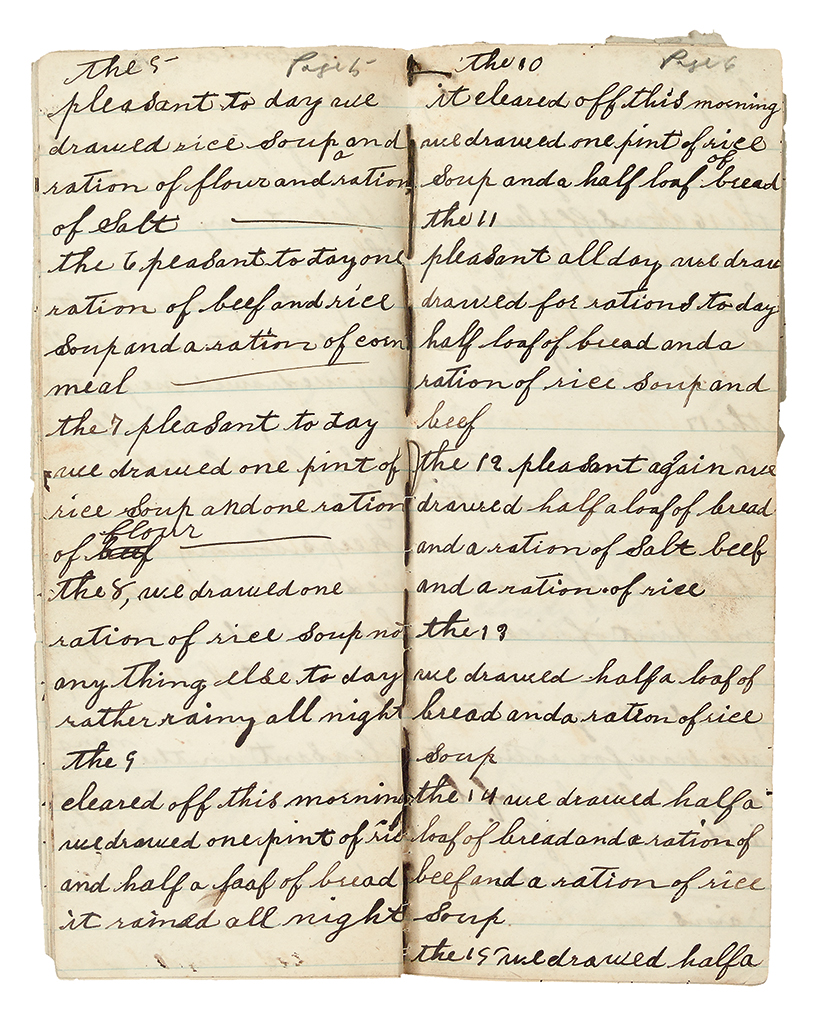 the 5 Page 5
pleasant to day we
drawed rice Soup and
ration of flour and a ration
of Salt
the 6 peasant to day one
ration of beef and rice
Soup and a ration of corn
meal
the 7 pleasant to day
we drawed one pint of
rice Soup and one ration
of flour
the 8, we drawed one
ration of rice Soup no
any thing else to day
rather rainy all night
the 9
cleared off this morning
we drawed one pint of ric
and half a faaf of bread
it rained all night
the 10 Page 6
it cleared off this morning
we drawed one pint of rice
Soup and a half loaf of bread
the 11
pleasant all day we draw
drawed for rations to day
half loaf of bread and a
ration of rice Soup and
beef
the 12 pleasant again we
drawed half a loaf of bread
and a ration of Salt beef
and a ration of rice
the 13
we drawed half a loaf of
bread and a ration of rice
Soup
the 14 we drawed half a
loaf of bread and a ration of
beef and a ration of rice
Soup
the 15 we drawed half a